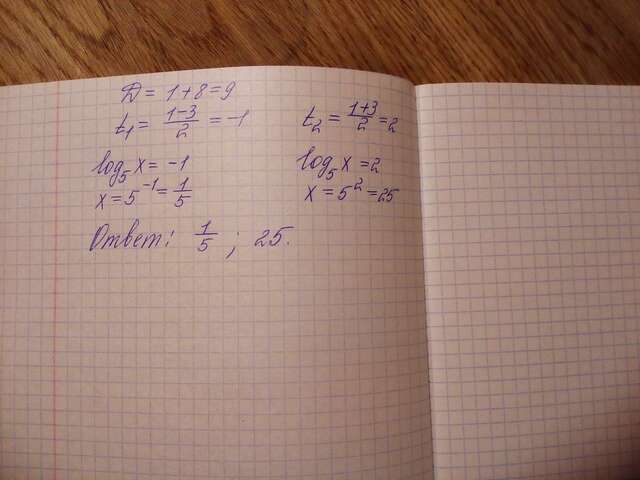 D = 1+8=9
t₁ = \frac{1-3}{2} = -1
t₂ = \frac{1+3}{2} = 2
log₅ x = -1
log₅ x = 2
x = 5⁻¹ = \frac{1}{5}
x = 5² = 25
Ответ: \frac{1}{5} ; 25.